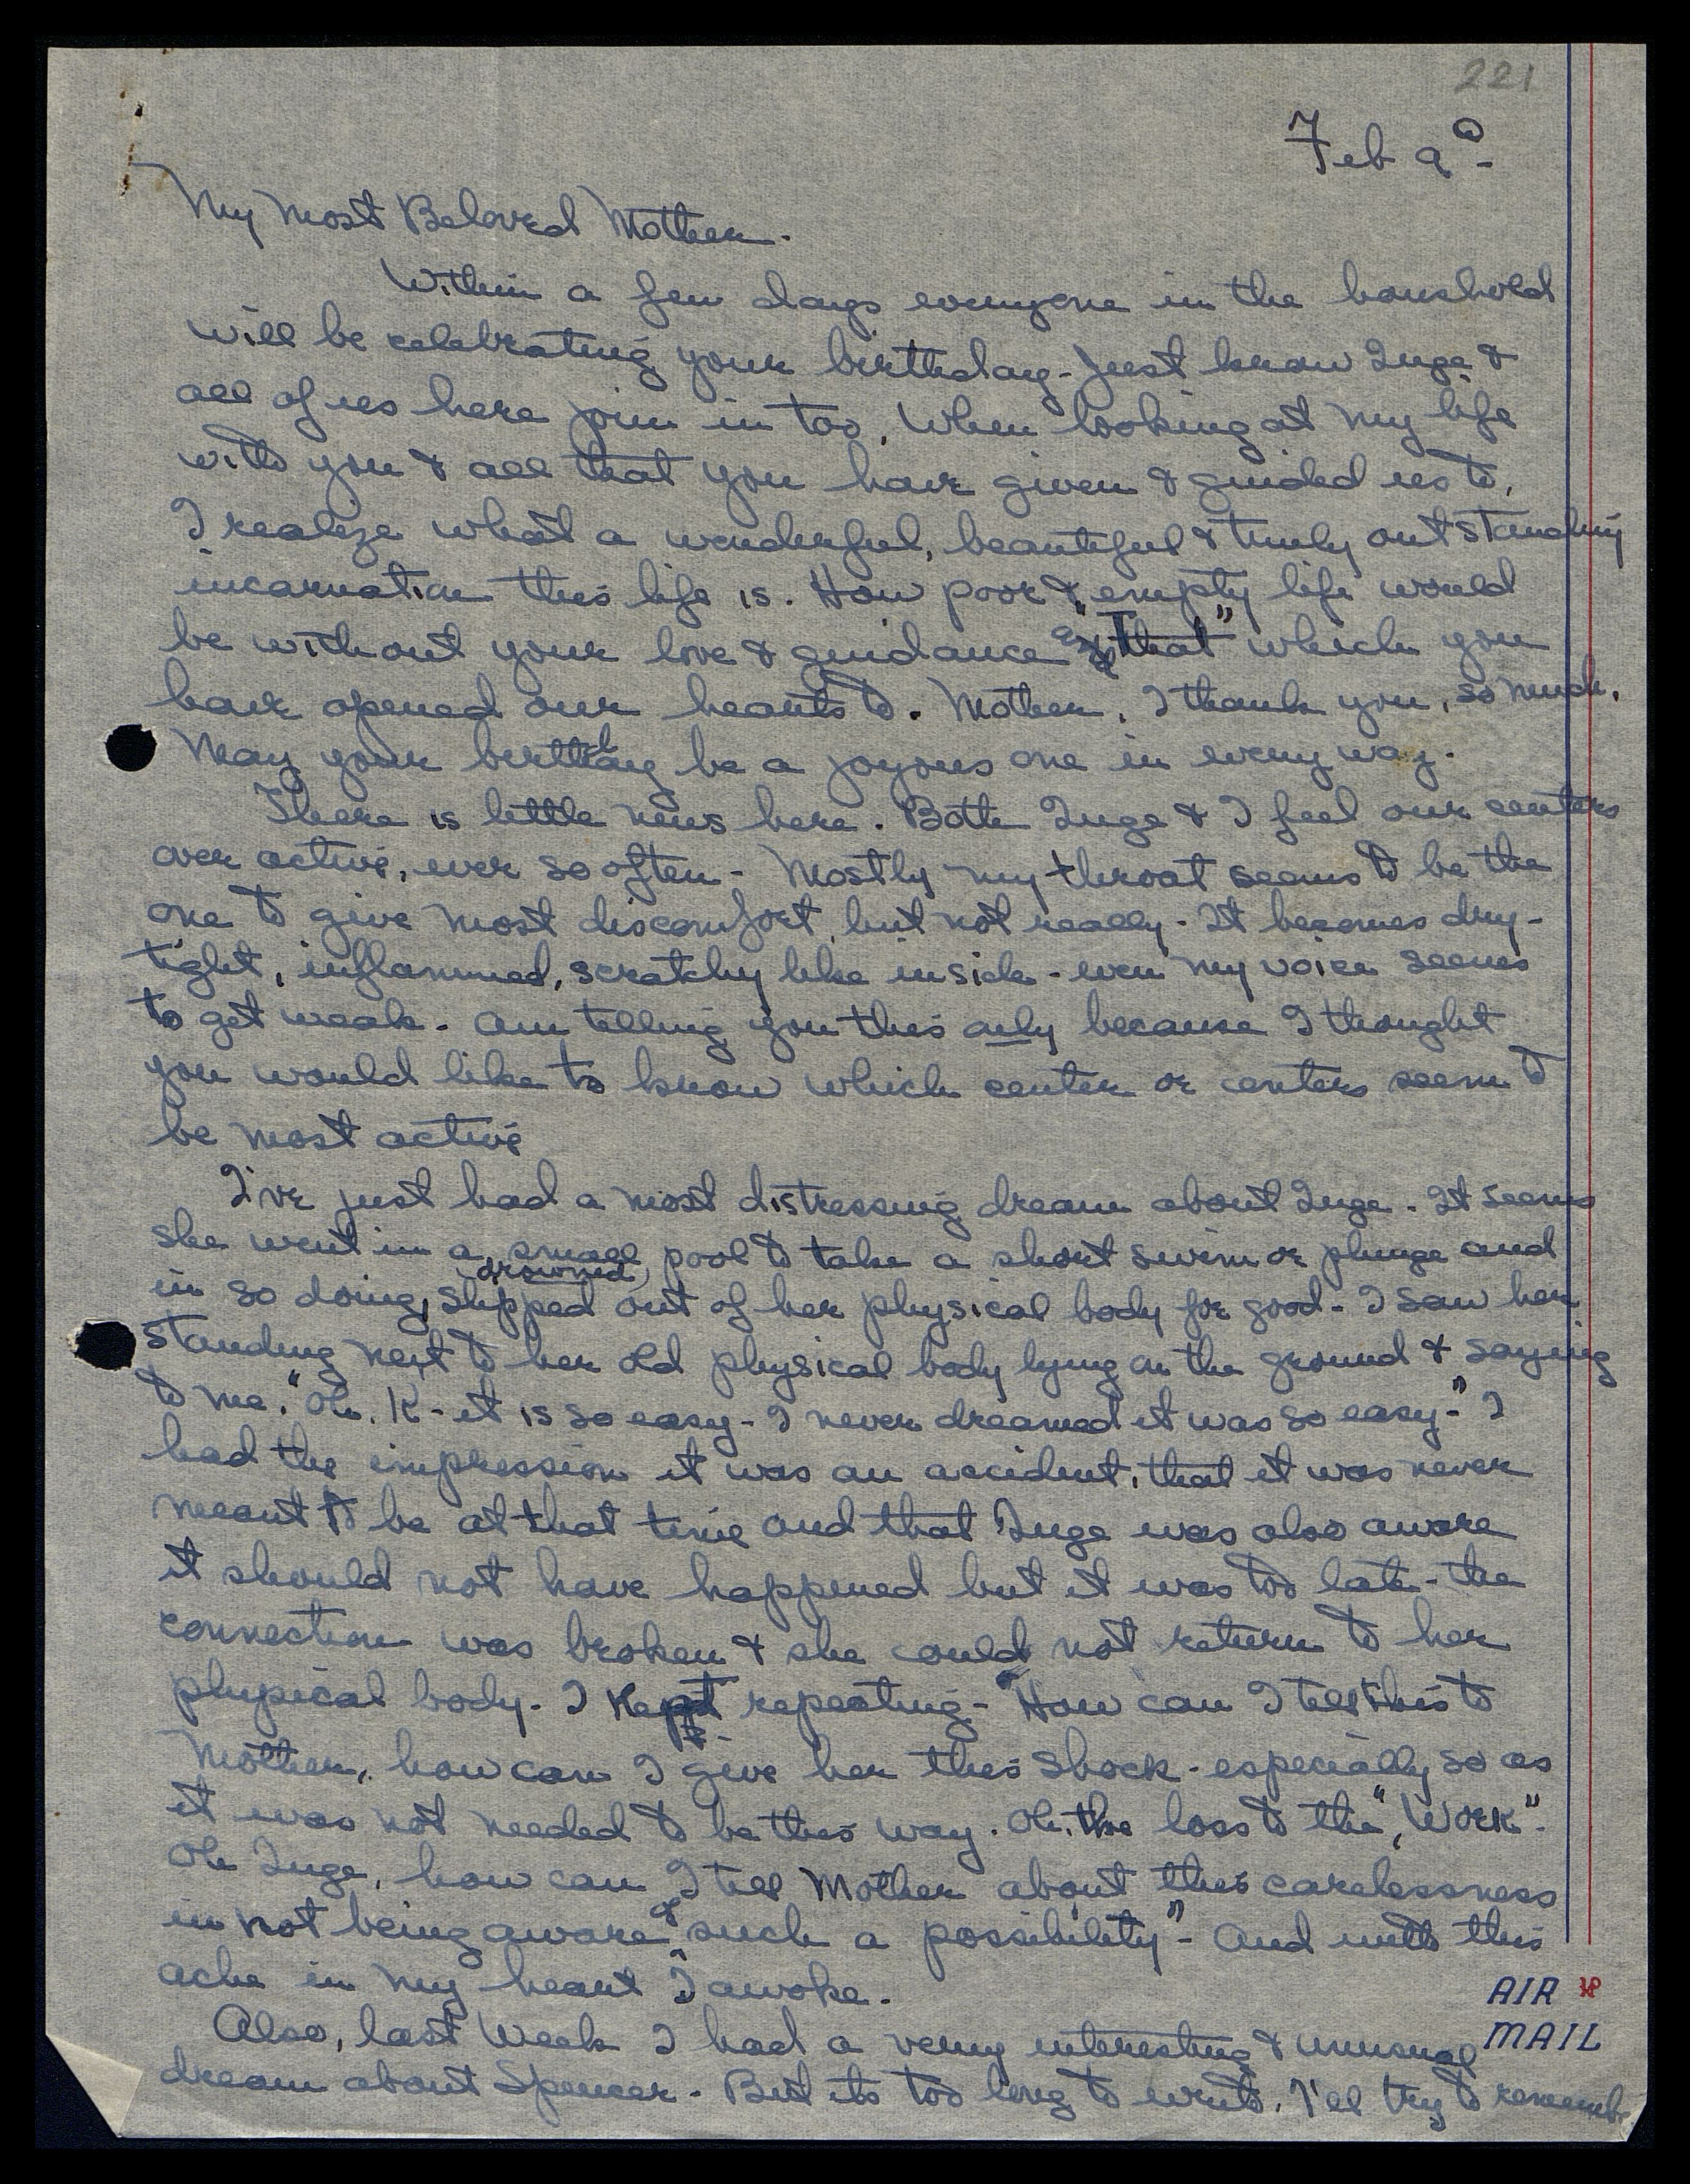 221
Feb 9 -
My Most Beloved Mother.
Within a few days everyone in the houshold
will be celebrating your birthday - Just know Inge &
all of us here join in too. When looking at my life
with you & all that you have given & guided us to,
I realize what a wonderful, beautiful & truly outstanding
incarnation this life is. How poor & empty life would
be without your love & guidance & "That" which you
have opened our hearts to. Mother, I thank you, so much.
May your birthday be a joyous one in every way.
There is little news here. Both Inge & I feel our centers
over active, ever so often - Mostly my throat seems to be the
one to give most discomfort, but not really - It becomes dry -
tight, inflammed, scratchy like inside - even my voice seems
to get weak. Am telling you this only because I thought
you would like to know which center or centers seem to
be most active
I've just had a most distressing dream about Inge. It seems
she went in a small pool to take a short swim or plunge and
in so doing, (drowned) slipped out of her physical body for good - I saw her
standing next to her old physical body lying on the ground & saying
to me, "Oh, K - it is so easy - I never dreamed it was so easy -" I
had the impression it was an accident, that it was never
meant to be at that time and that Inge was also aware
it should not have happened but it was too late - the
connection was broken & she could not return to her
physical body - I kept repeating - "How can I tell this to
Mother, how can I give her this shock - especially so as
it was not needed to be this way. Oh, the loss to the "Work".
Oh Inge, how can I tell Mother about this carelessness
in not being aware of such a possibility" - And with this
ache in my heart I awoke.
Also, last week I had a very interesting & unusual
dream about Spencer - But its too long to write. I'll try to remembe
AIR
MAIL